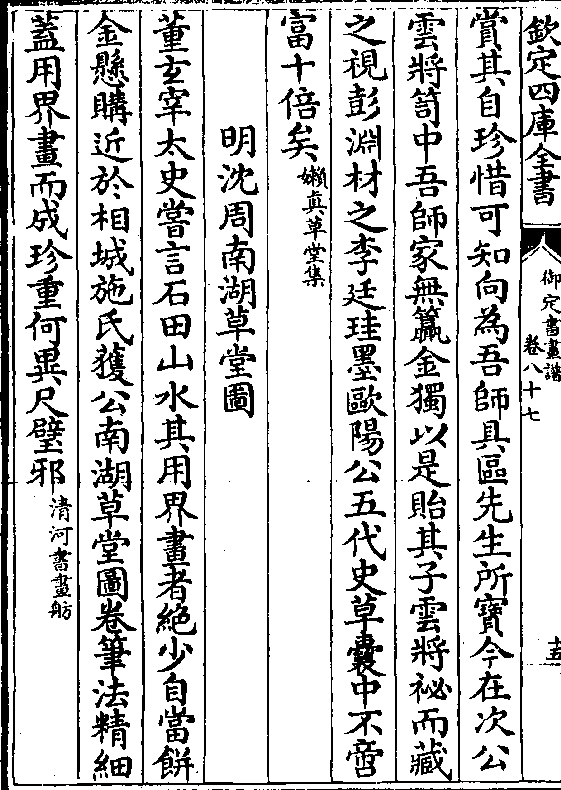 欽定四庫全書
御定書畫譜
卷八十七
十五
賞其自珍惜可知向為吾師具區先生所寶今在次公
雲將笥中吾師家無籯金獨以是貽其子雲將祕而藏
之視彭淵材之李廷珪墨歐陽公五代史草囊中不啻
富十倍矣嬾真草堂集
明沈周南湖草堂圖
董玄宰太史嘗言石田山水其用界畫者絶少自當餅
金懸購近於相城施氏獲公南湖草堂圖卷筆法精細
蓋用界畫而成珍重何異尺璧邪清河書畫舫